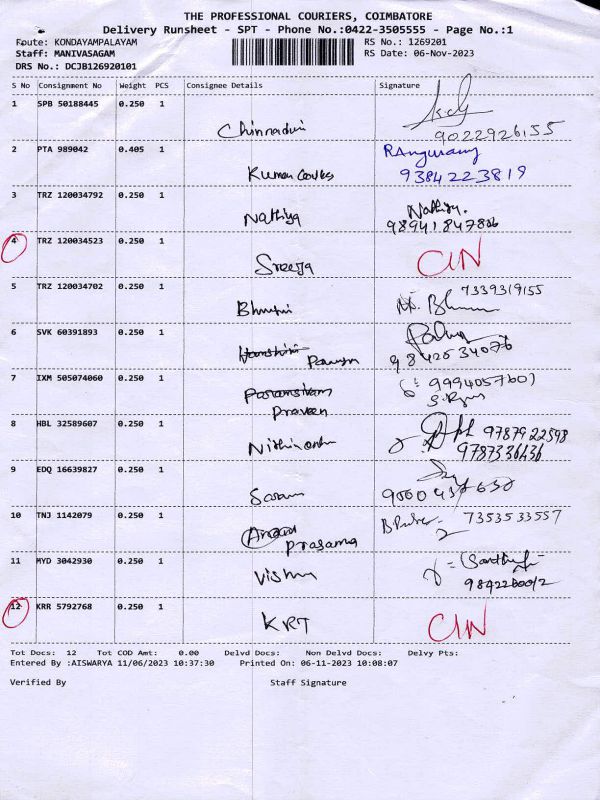 THE PROFESSIONAL COURIERS, COIMBATORE
Delivery Runsheet - SPT - Phone No.:0422-3505555 - Page No.:1
Route: KONDAYAMPALAYAM RS No.: 1269201
Staff: MANIVASAGAM RS Date: 06-Nov-2023
DRS No.: DCJB126920101
S No Consignment No Weight PCS Consignee Details Signature
1 SPB 50188445 0.250 1
Chinnadurai
9022926155
2 PTA 989042 0.405 1
Kumar 9384223819
3 TRZ 120034792 0.250 1
Nathiya Nathiya.
4 TRZ 120034523 0.250 1
Sreeja C/N
5 TRZ 120034702 0.250 1
7339319155
6 SVK 60391893 0.250 1
9842634076
7 IXM 505074060 0.250 1
Praveen
8 HBL 32589607 0.250 1
9787922598
9787336636
9 EDQ 16639827 0.250 1
10 TNJ 1142079 0.250 1
Anand Prasanna 7353533557
11 MYD 3042930 0.250 1
Vishnu
12 KRR 5792768 0.250 1
KRT C/N
Tot Docs: 12 Tot COD Amt: 0.00 Delvd Docs: Non Delvd Docs: Delvy Pts:
Entered By :AISWARYA 11/06/2023 10:37:30 Printed On: 06-11-2023 10:08:07
Verified By Staff Signature